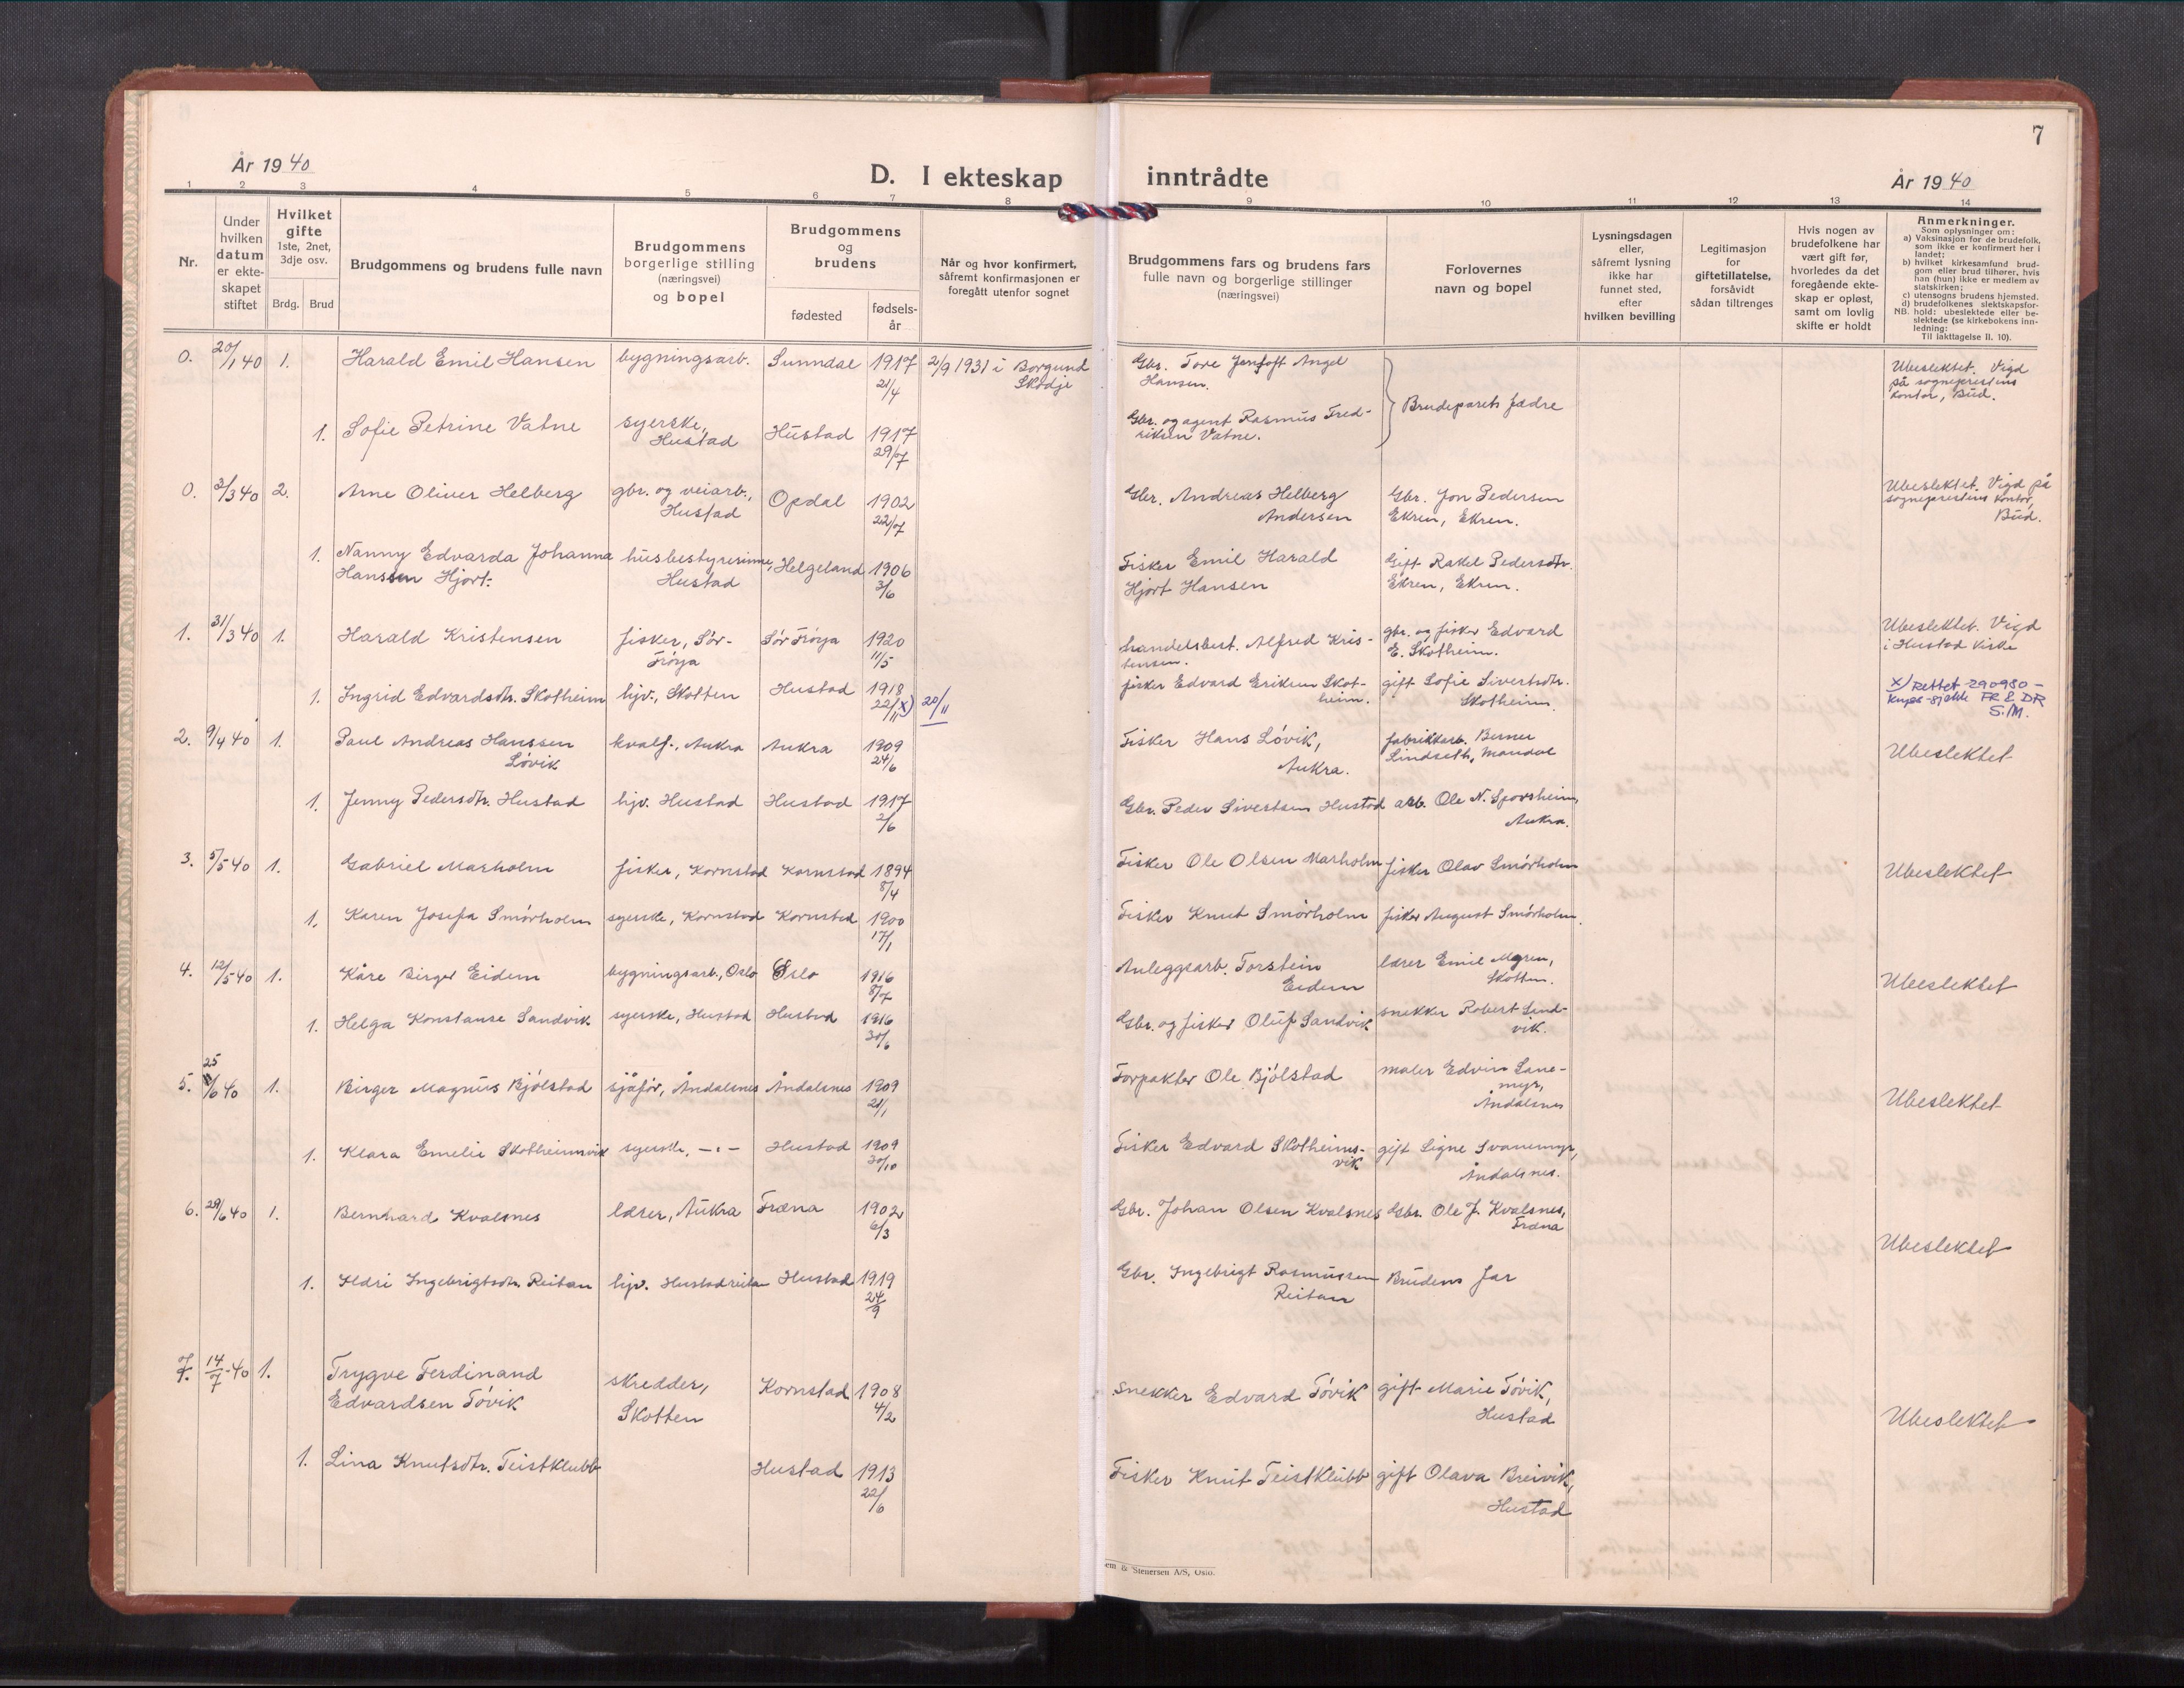 7
År 1940
D. I ekteskap inntrådte
År 1940
1 2 3 4 5 6 7 8 9 10 11 12 13 14
Nr.
Under
hvilken
datum
er ekte-
skapet
stiftet
Hvilket
gifte
1ste, 2net,
3dje osv.
Brdg. Brud
Brudgommens og brudens fulle navn
Brudgommens
borgerlige stilling
(næringsvei)
og bopel
Brudgommens
og
brudens
fødested
fødsels-
år
Når og hvor konfirmert,
såfremt konfirmasjonen er
foregått utenfor sognet
Brudgommens fars og brudens fars
fulle navn og borgerlige stillinger
(næringsvei)
Forlovernes
navn og bopel
Lysningsdagen
eller,
såfremt lysning
ikke har
funnet sted,
efter
hvilken bevilling
Legitimasjon
for
giftetillatelse,
forsåvidt
sådan tiltrenges
Hvis nogen av
brudefolkene har
vært gift før,
hvorledes da det
foregående ekte-
skap er opløst,
samt om lovlig
skifte er holdt
Anmerkninger.
Som oplysninger om:
a) Vaksinasjon for de brudefolk,
som ikke er konfirmert her i
landet;
b) hvilket kirkesamfund brud-
gom eller brud tilhører, hvis
han (hun) ikke er medlem av
statskirken;
c) utensogns brudens hjemsted.
d) brudefolkenes slektskapsfor-
hold: ubeslektede eller be-
slektede (se kirkebokens inn-
ledning:
NB.
Til iakttagelse II. 10).
0. 20/1 40 1. Harald Emil Hansen bygningsarb. Sunndal 1917 21/4 21/9 1931 i Borgund
Skodje
Gbr. Tore Angel
Hansen.
Brudeparets fædre
Ubeslektet. Vigd
på sogneprestens
kontor, Bud.
1. Sofie Petrine Vatne syerske,
Hustad Hustad 1917 29/7
Gbr. og agent Rasmus Fred-
riksen Vatne.
0. 2/3 40 2. Arne Oliver Helberg gbr. og veiarb.,
Hustad Opdal 1902 22/7
Gbr. Andreas Helberg
Andersen
Gbr. Jon Pedersen
Ekren, Ekren.
Ubeslektet. Vigd på
sogneprestens kontor,
Bud.
1. Nanny Edvarda Johanna
Hanssen Hjort. husbestyrerinne,
Hustad Helgeland 1906 3/6
Fisker Emil Harald
Hjort Hansen
Gift Rakel Pedersdtr.
Ekren, Ekren.
1. 31/3 40 1. Harald Kristensen fisker, Sør-
Frøya Sør Frøya 1920 11/5
handelsbest. Alfred Kris-
tensen.
gbr. og fisker Edvard
E. Skotheim.
Ubeslektet. Vigd
i Hustad kirke
1. Ingrid Edvardsdtr. Skotheim hjv., Skotten Hustad 1918 22/11 x) 20/11
fisker Edvard Eriksen Skot-
heim.
gift Sofie Sivertsdtr.
Skotheim.
x) Rettet 290980 -
FR & DR
S.M.
2. 9/4 40 1. Paul Andreas Hanssen
Løvik kvalf., Aukra Aukra 1909 24/6
Fisker Hans Løvik,
Aukra.
fabrikkarb. Berner
Lindseth, Mandal
Ubeslektet
1. Jenny Pedersdtr. Hustad hjv. Hustad Hustad 1917 2/6
Gbr. Peder Sivertsen Hustad
arb. Ole N. Sporsheim,
Aukra.
3. 5/5 40 1. Gabriel Marholm fisker, Kornstad Kornstad 1894 8/4
Fisker Ole Olsen Marholm
fisker Olav Smørholm
Ubeslektet
1. Karen Josefa Smørholm syerske, Kornstad Kornstad 1900 17/1
Fisker Knut Smørholm
fisker August Smørholm.
4. 12/5 40 1. Kåre Birger Eidem bygningsarb., Oslo Oslo 1916 8/7
Anleggsarb. Torstein
Eidem
lærer Emil Myren,
Skotten.
Ubeslektet
1. Helga Konstanse Sandvik syerske, Hustad Hustad 1916 30/6
Gbr. og fisker Oluf Sandvik
snekker Robert Sand-
vik.
5. 25/6 40 1. Birger Magnus Bjølstad sjåfør, Åndalsnes Åndalsnes 1909 21/1
Forpakter Ole Bjølstad
maler Edvin Svane-
myr,
Åndalsnes
Ubeslektet
1. Klara Emelie Skotheimsvik syerske, -"- Hustad 1909 30/10
Fisker Edvard Skotheims-
vik
gift Signe Svanemyr,
Åndalsnes.
6. 29/6 40 1. Bernhard Kvalsnes lærer, Aukra Fræna 1902 6/3
Gbr. Johan Olsen Kvalsnes
Gbr. Ole J. Kvalsnes,
Fræna
Ubeslektet
1. Ildri Ingebrigtsdtr. Reitan hjv. Hustadreitan Hustad 1919 24/9
Gbr. Ingebrigt Rasmussen
Reitan
Brudens far
7. 14/7-40 1. Trygve Ferdinand
Edvardsen Tøvik skredder,
Skotten Kornstad 1908 4/2
Snekker Edvard Tøvik
gift Marie Tøvik,
Hustad
Ubeslektet
1. Lina Knutsdtr. Teistklubb Hustad 1913 22/6
Fisker Knut Teistklubb
gift Olava Breivik,
Hustad
em & Stenersen A/S, Oslo.